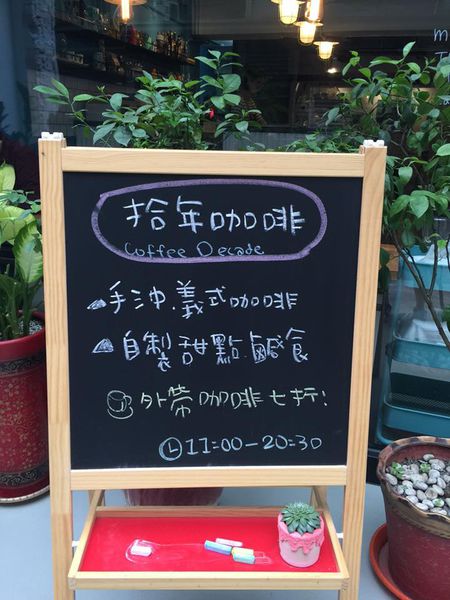 拾年咖啡
Coffee Decade
手沖.義式咖啡
自製甜點.鹹食
外帶咖啡七折!
11:00-20:30